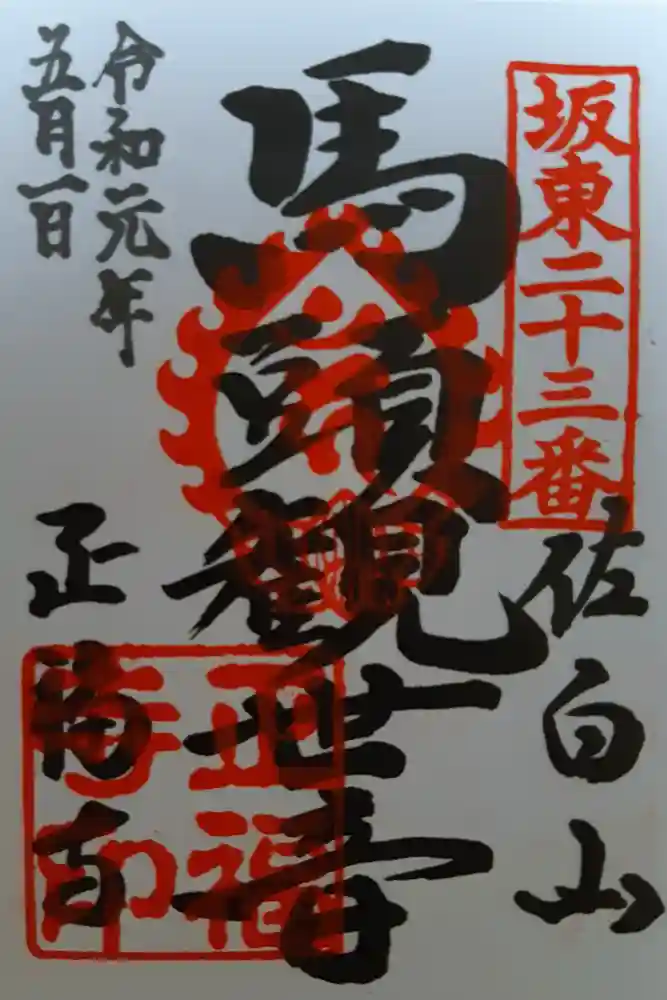 坂東二十三番
佐白山
馬頭観世音
令和元年
五月一日
正福寺
正福
寺印